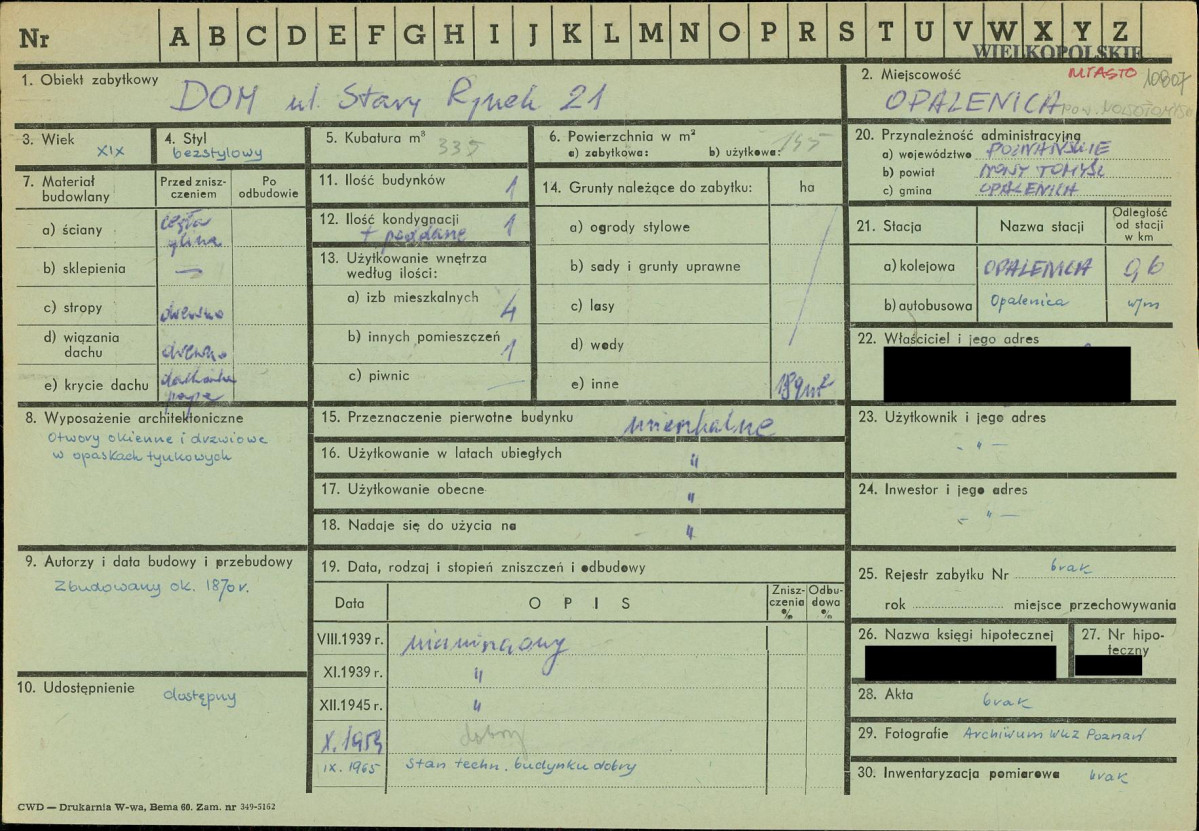 Nr A B C D E F G H I J K L M N O P R S T U V W X Y Z
WIELKOPOLSKIE
1. Obiekt zabytkowy
DOM ul. Stary Rynek 21
2. Miejscowość
MIASTO 10807
OPALENICA
3. Wiek
XIX
4. Styl
bezstylowy
5. Kubatura m³
335
6. Powierzchnia w m²
a) zabytkowa: b) użytkowa: 145
20. Przynależność administracyjna
a) województwo POZNAŃSKIE
b) powiat NOWY TOMYŚL
c) gmina OPALENICA
7. Materiał budowlany
Przed zniszczeniem
Po odbudowie
a) ściany cegła glina
b) sklepienia —
c) stropy drewno
d) wiązania dachu drewno
e) krycie dachu dachówka papa
11. Ilość budynków 1
12. Ilość kondygnacji 1
+ poddasze
13. Użytkowanie wnętrza
według ilości:
a) izb mieszkalnych 4
b) innych pomieszczeń 1
c) piwnic —
14. Grunty należące do zabytku: ha
a) ogrody stylowe
b) sady i grunty uprawne
c) lasy
d) wody
e) inne 189 m²
21. Stacja Nazwa stacji Odległość od stacji w km
a) kolejowa OPALENICA 0,6
b) autobusowa Opalenica w/m
22. Właściciel i jego adres
8. Wyposażenie architektoniczne
Otwory okienne i drzwiowe
w opaskach tynkowych
15. Przeznaczenie pierwotne budynku mieszkalne
16. Użytkowanie w latach ubiegłych "
17. Użytkowanie obecne "
18. Nadaje się do użycia na "
23. Użytkownik i jego adres
- " -
24. Inwestor i jego adres
- " -
9. Autorzy i data budowy i przebudowy
Zbudowany ok. 1870 r.
10. Udostępnienie dostępny
19. Data, rodzaj i stopień zniszczeń i odbudowy
Data OPIS Zniszczenia % Odbudowa %
VIII.1939 r.
XI.1939 r. "
XII.1945 r. "
X. 1959 dobry
IX. 1965 Stan techn. budynku dobry
25. Rejestr zabytku Nr brak
rok miejsce przechowywania
26. Nazwa księgi hipotecznej
27. Nr hipoteczny
28. Akta brak
29. Fotografie Archiwum WKZ Poznań
30. Inwentaryzacja pomiarowa brak
CWD — Drukarnia W-wa, Bema 60. Zam. nr 349-5162